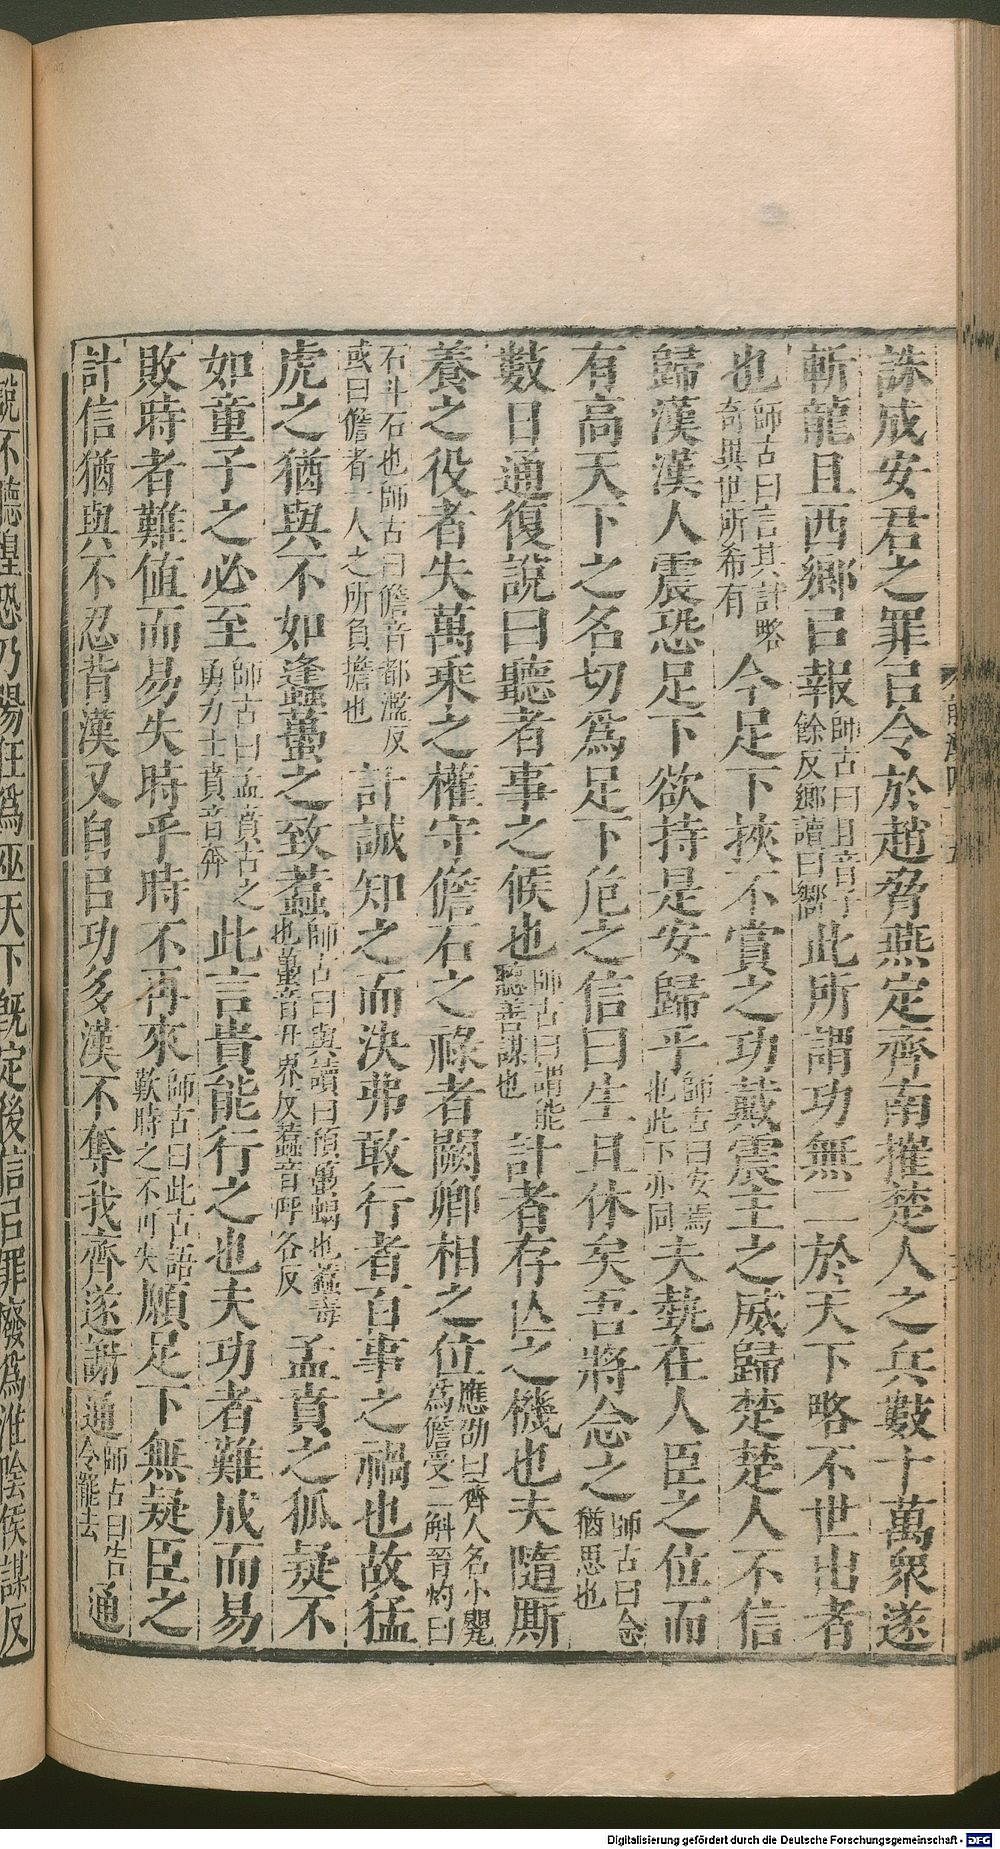 誅成安君之罪㠯令於趙脅燕定齊南摧楚人之兵數十萬衆遂
斬龍且西鄉㠯報師古曰且音子餘反鄉讀曰嚮此所謂功無二於天下略不世出者
也師古曰言其計略奇異世所希有今足下挾不賞之功戴震主之威歸楚楚人不信
歸漢漢人震恐足下欲持是安歸乎師古曰安焉也此下亦同夫埶在人臣之位而
有高天下之名切爲足下危之信曰生且休矣吾將念之師古曰念猶思也
數日通復說曰聽者事之候也師古曰謂能聽善謀也計者存亾之機也夫隨厮
養之役者失萬乘之權守儋石之祿者闕卿相之位應劭曰齊人名小甖爲儋受二斛晉灼曰
石斗石也師古曰儋音都濫反或曰儋者一人之所負擔也計誠知之而決弗敢行者百事之禍也故猛
虎之猶與不如蠭蠆之致蠚師古曰與讀曰預蠆蝎也蠚毒也蠆音丑界反蠚音呼各反孟賁之狐疑不
如童子之必至師古曰孟賁古之勇力士賁音奔此言貴能行之也夫功者難成而易
敗時者難値而易失時乎時不再來師古曰此古語歎時之不可失願足下無疑臣之
計信猶與不忍背漢又自㠯功多漢不奪我齊遂謝通師古曰告令罷去通
說不聽惶恐乃陽狂爲巫天下旣定後信㠯罪廢爲淮陰侯謀反
Digitalisierung gefördert durch die Deutsche Forschungsgemeinschaft - DFG